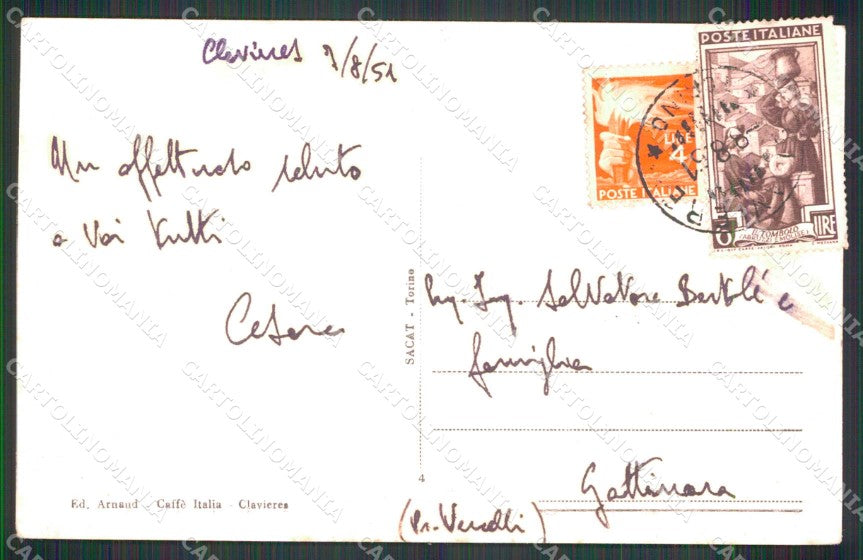 Clavieres 7/8/51
Un affettuoso saluto
a Voi tutti
Cesare
POSTE ITALIANE
LIRE
4
POSTE ITALIANE
8 8 51
6 LIRE
IL TOMBOLO
(ABRUZZI E MOLISE)
SACAT - Torino
Ing. Salvatore Bertolé e
famiglia
Gattinara
(Pr. Vercelli)
4
Ed. Arnaud - Caffè Italia - Clavieres
CARTOLINOMANIA